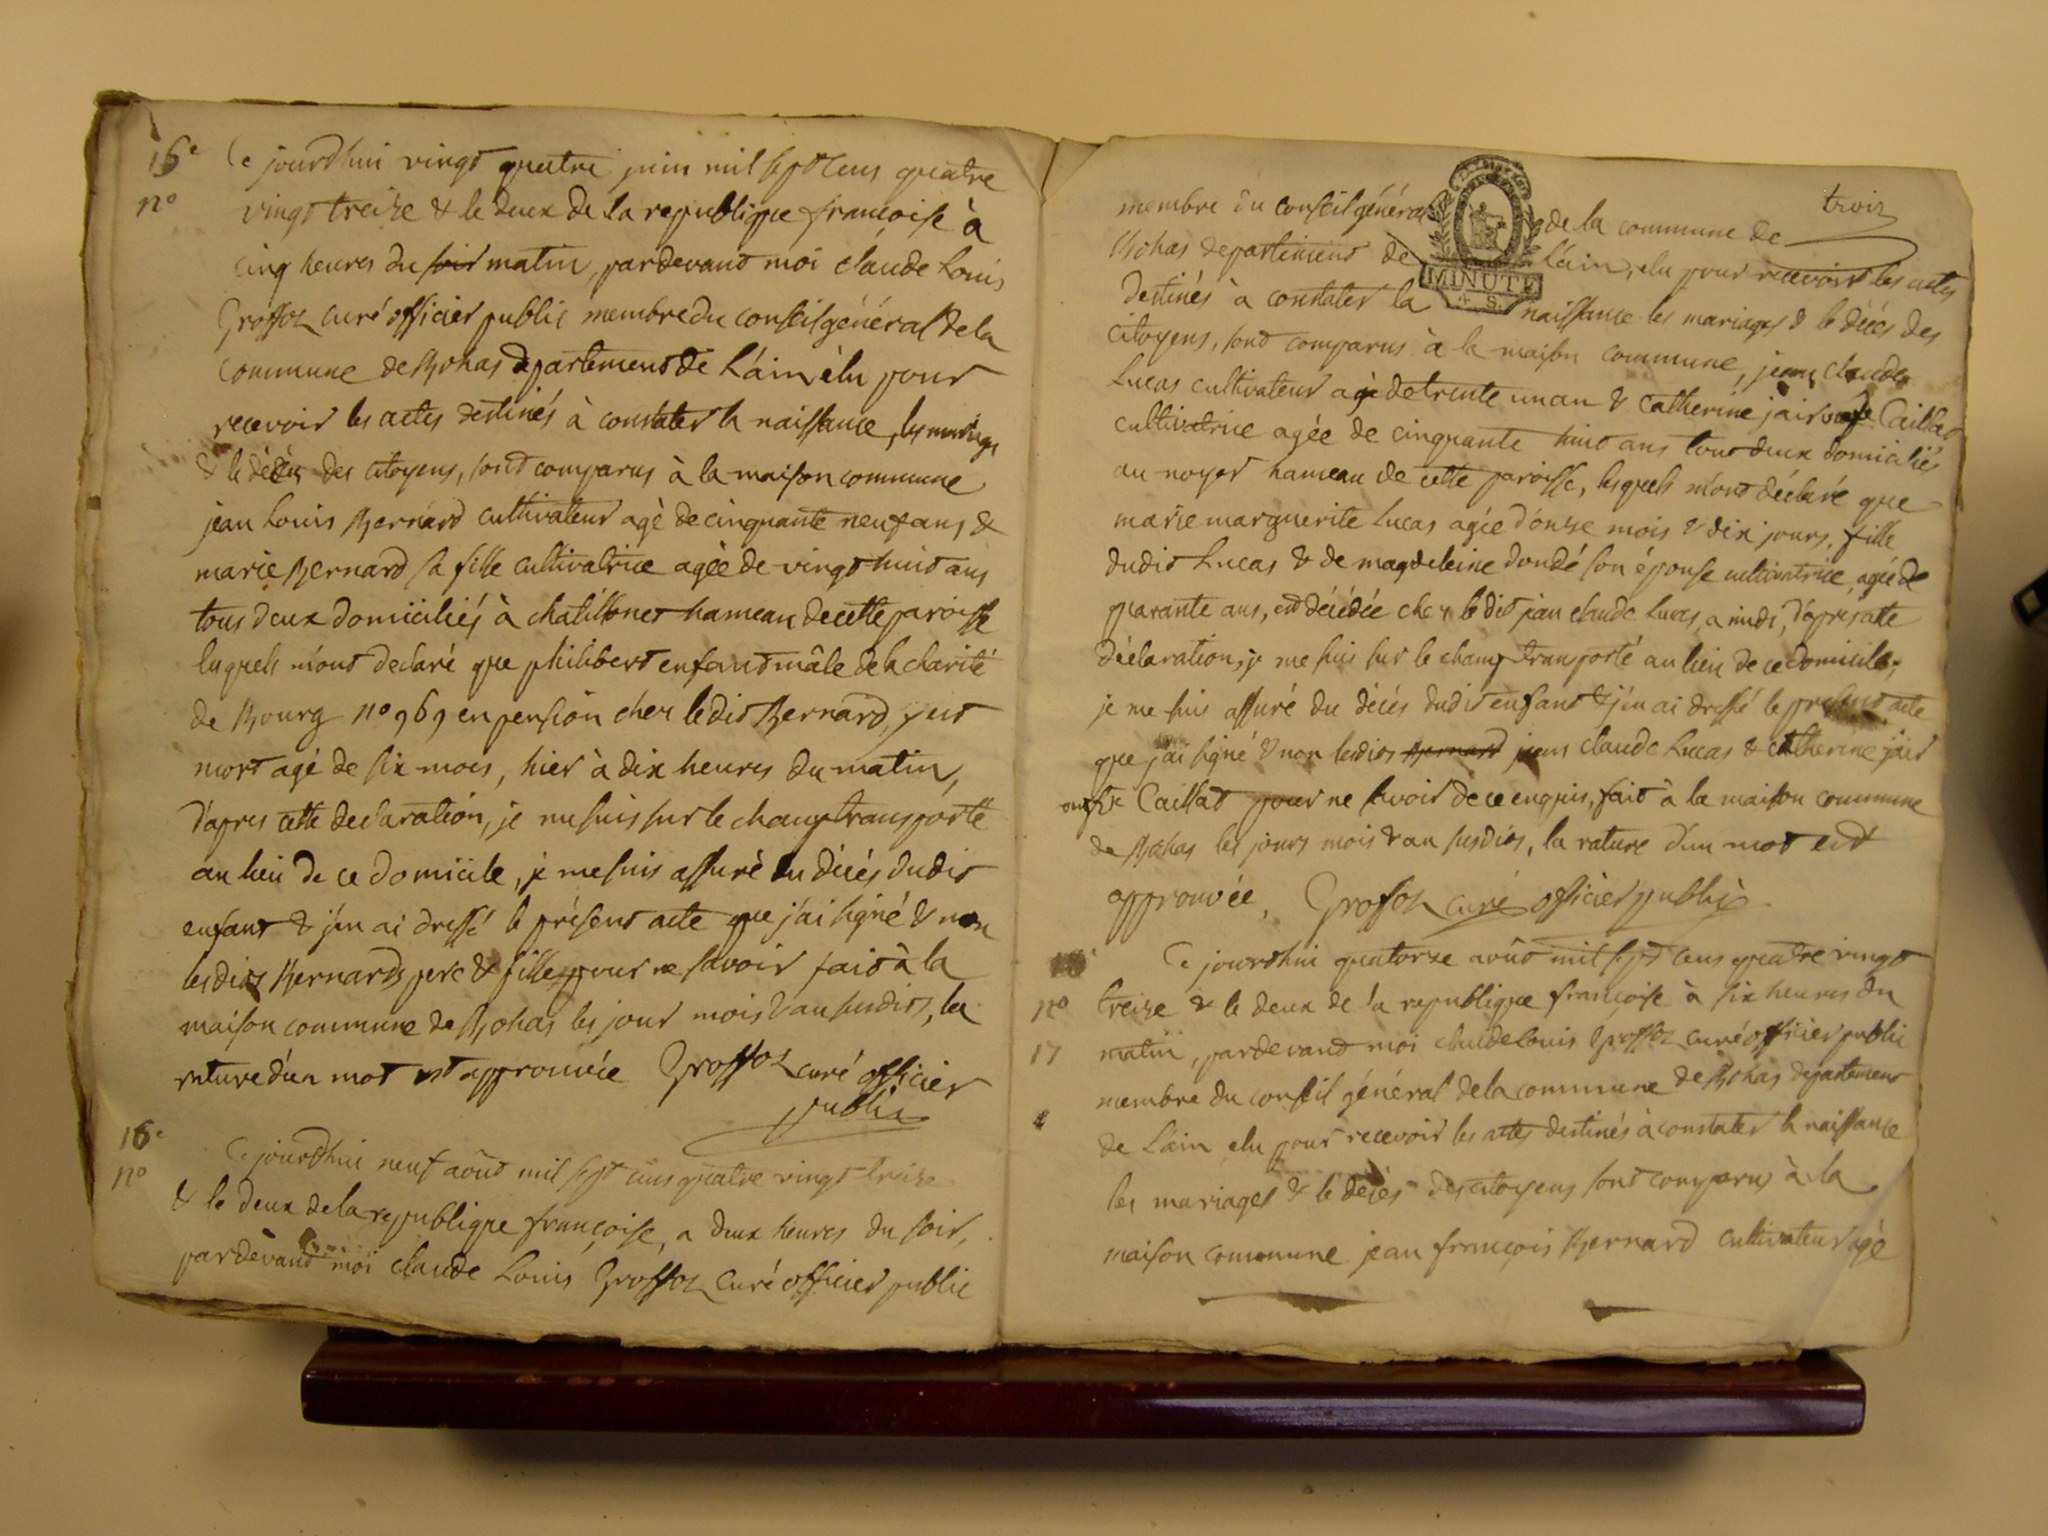 15e
Ce jourdhui vingt quatre juin mil sept cens quatre
no
vingt treize & le deux de la republique francoise à
cinq heures du soir matin, pardevant moi claude Louis
Grossoz curé officier public membre du conseil général de la
commune de Bohas departement de L'ain élu pour
recevoir les actes destinés à constater la naissance, les mariages
& le décès des citoyens, sont comparus à la maison commune
jean Louis Bernard cultivateur agé de cinquante neuf ans &
marie Bernard sa fille cultivatrice agée de vingt huit ans
tous deux domiciliés à chatillonet hameau de cette paroisse
lesquels m'ont declaré que philibert enfant mâle de la charité
de Bourg no 969 en pension chez ledit Bernard, y est
mort agé de six mois, hier à dix heures du matin,
d'apres cette declaration, je me suis sur le champ transporté
au lieu de ce domicile, je me suis assuré du décés dudit
enfant & j'en ai dressé le présent acte que j'ai signé & non
lesdits Bernards pere & fille pour ne savoir fait à la
maison commune de Bohas les jour mois & an susdits, la
rature d'un mot est approuvée Grossoz curé officier
public
16e
Ce jourdhui neuf août mil sept cens quatre vingt treize
no
& le deux de la republique françoise, a deux heures du soir,
pardevant moi claude Louis Grossoz curé officier public
trois
membre du conseil général de la commune de
Bohas departement de L'ain, elu pour recevoir les actes
MINUTE
4 S.
destinés à constater la naissance les mariages & le décés des
citoyens, sont comparus à la maison commune, jean claude
Lucas cultivateur agé de trente un an & Catherine jair Caillat
cultivatrice agée de cinquante huit ans tout deux domiciliés
au noyer hameau de cette paroisse, lesquels m'ont déclaré que
marie marguerite Lucas agée d'onze mois & dix jours, fille
dudit Lucas & de magdeleine dondé son épouse cultivatrice, agée de
quarante ans, est décédée chez ledit jean claude Lucas, a midi, d'après cette
déclaration, je me suis sur le champ transporté au lieu de ce domicile,
je me suis assuré du décés dudit enfant & j'en ai dressé le present acte
que j'ai signé & non lesdits Bernard jean claude Lucas & catherine jair
Caillat pour ne savoir de ce enquis, fait à la maison commune
de Bohas les jours mois & an susdits, la rature d'un mot est
approuvée, Grossoz curé officier public
Ce jourdhui quatorze août mil sept cens quatre vingt
no
treize & le deux de la republique françoise à six heures du
17
matin, pardevant moi claude Louis Grossoz curé officier public
membre du conseil général de la commune de Bohas departement
de L'ain elu pour recevoir les actes destinés à constater la naissance
les mariages & le décés des citoyens sont comparus à la
maison commune jean françois Bernard cultivateur agé